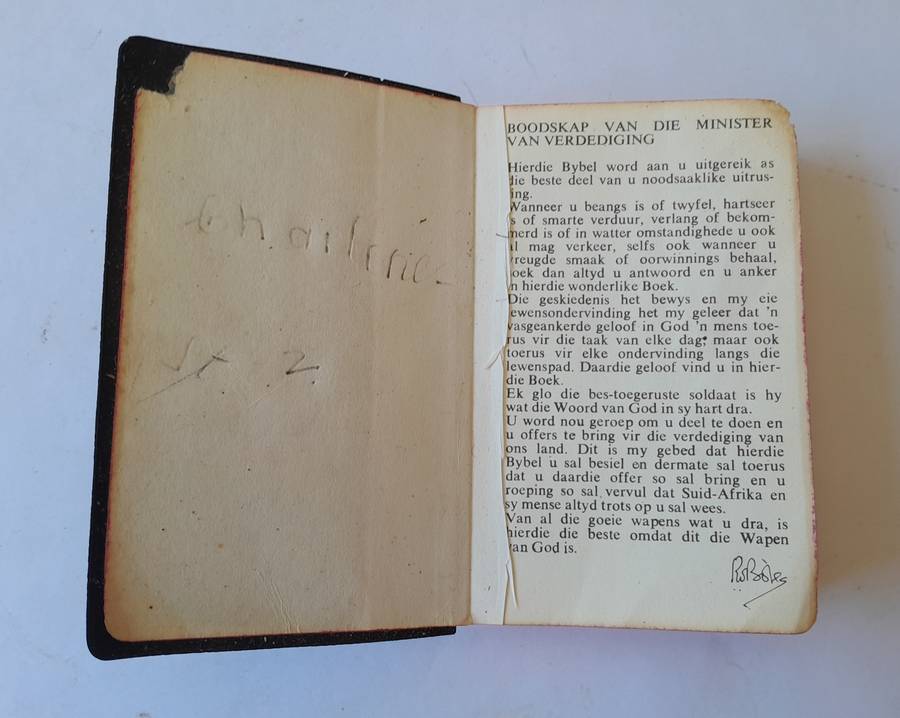 Charlene
St 2.
BOODSKAP VAN DIE MINISTER
VAN VERDEDIGING
Hierdie Bybel word aan u uitgereik as
die beste deel van u noodsaaklike uitrus-
ing.
Wanneer u beangs is of twyfel, hartseer
is of smarte verduur, verlang of bekom-
merd is of in watter omstandighede u ook
al mag verkeer, selfs ook wanneer u
vreugde smaak of oorwinnings behaal,
soek dan altyd u antwoord en u anker
in hierdie wonderlike Boek.
Die geskiedenis het bewys en my eie
lewensondervinding het my geleer dat 'n
vasgeankerde geloof in God 'n mens toe-
rus vir die taak van elke dag; maar ook
toerus vir elke ondervinding langs die
lewenspad. Daardie geloof vind u in hier-
die Boek.
Ek glo die bes-toegeruste soldaat is hy
wat die Woord van God in sy hart dra.
U word nou geroep om u deel te doen en
u offers te bring vir die verdediging van
ons land. Dit is my gebed dat hierdie
Bybel u sal besiel en dermate sal toerus
dat u daardie offer so sal bring en u
roeping so sal vervul dat Suid-Afrika en
sy mense altyd trots op u sal wees.
Van al die goeie wapens wat u dra, is
hierdie die beste omdat dit die Wapen
van God is.